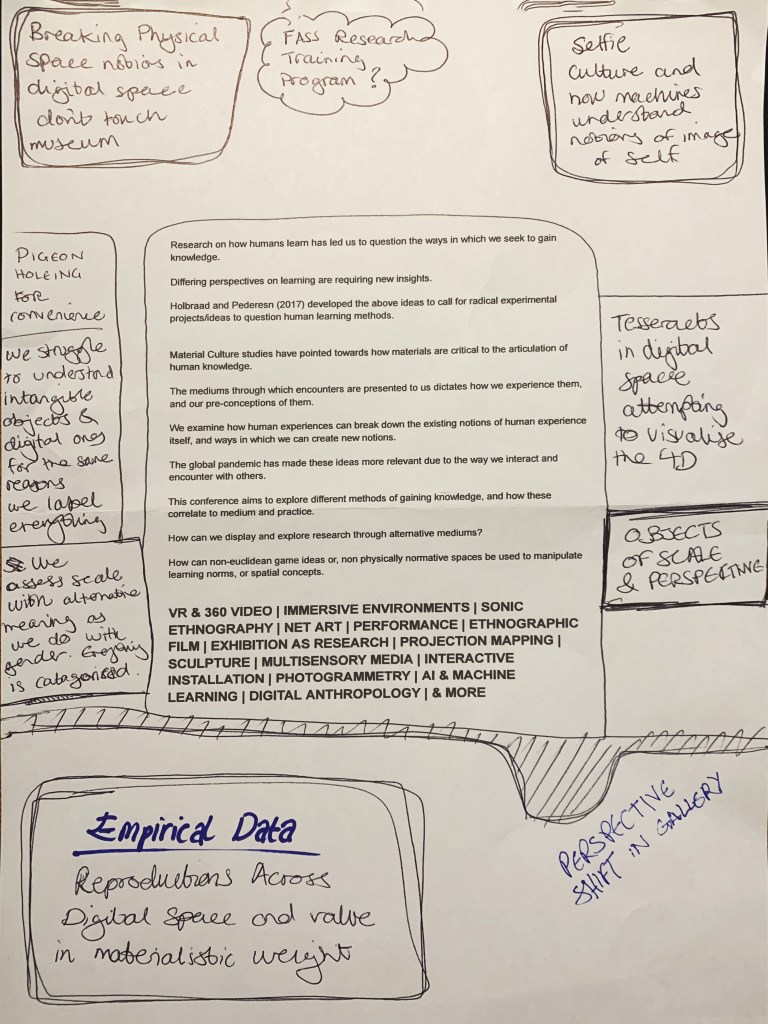 Breaking Physical
Space notions in
digital space
don't touch
museum
FASS Research
Training
Program?
Selfie
culture and
how machines
understand
notions of image
of self
PIGEON
HOLEING
FOR
convenience
we struggle
to understand
intangible
objects &
digital ones
for the same
reasons
we label
everything
We
assess scale
with alternative
meaning as
we do with
gender. Everything
is catagorised.
Research on how humans learn has led us to question the ways in which we seek to gain
knowledge.
Differing perspectives on learning are requiring new insights.
Holbraad and Pederesn (2017) developed the above ideas to call for radical experimental
projects/ideas to question human learning methods.
Material Culture studies have pointed towards how materials are critical to the articulation of
human knowledge.
The mediums through which encounters are presented to us dictates how we experience them,
and our pre-conceptions of them.
We examine how human experiences can break down the existing notions of human experience
itself, and ways in which we can create new notions.
The global pandemic has made these ideas more relevant due to the way we interact and
encounter with others.
This conference aims to explore different methods of gaining knowledge, and how these
correlate to medium and practice.
How can we display and explore research through alternative mediums?
How can non-euclidean game ideas or, non physically normative spaces be used to manipulate
learning norms, or spatial concepts.
VR & 360 VIDEO | IMMERSIVE ENVIRONMENTS | SONIC
ETHNOGRAPHY | NET ART | PERFORMANCE | ETHNOGRAPHIC
FILM | EXHIBITION AS RESEARCH | PROJECTION MAPPING |
SCULPTURE | MULTISENSORY MEDIA | INTERACTIVE
INSTALLATION | PHOTOGRAMMETRY | AI & MACHINE
LEARNING | DIGITAL ANTHROPOLOGY | & MORE
Tesseracts
in digital
space
attempting
to visualise
the 4D
OBJECTS
OF SCALE
& PERSPECTIVE
Empirical Data
Reproductions Across
Digital Space and value
in materialistic weight
PERSPECTIVE
SHIFT IN GALLERY